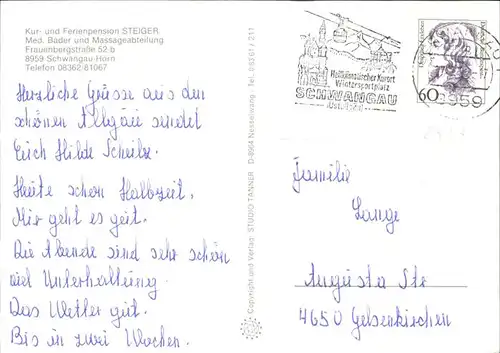 Kur- und Ferienpension STEIGER
Med. Bäder und Massageabteilung
Frauenbergstraße 52 b
8959 Schwangau-Horn
Telefon 08362/81067
Herzliche Grüsse aus dem
schönen Allgäu sendet
Euch Hilde Scheilz.
Heute schon Halbzeit,
Mir geht es gut.
Die Abende sind sehr schön
viel Unterhaltung
Das Wetter gut.
Bis in zwei Wochen.
Copyright und Verlag: STUDIO TANNER D-8964 Nesselwang
Heilklimatischer Kurort
Wintersportplatz
SCHWANGAU
8959
60
Familie
Lange
Augusta Str
4650 Gelsenkirchen